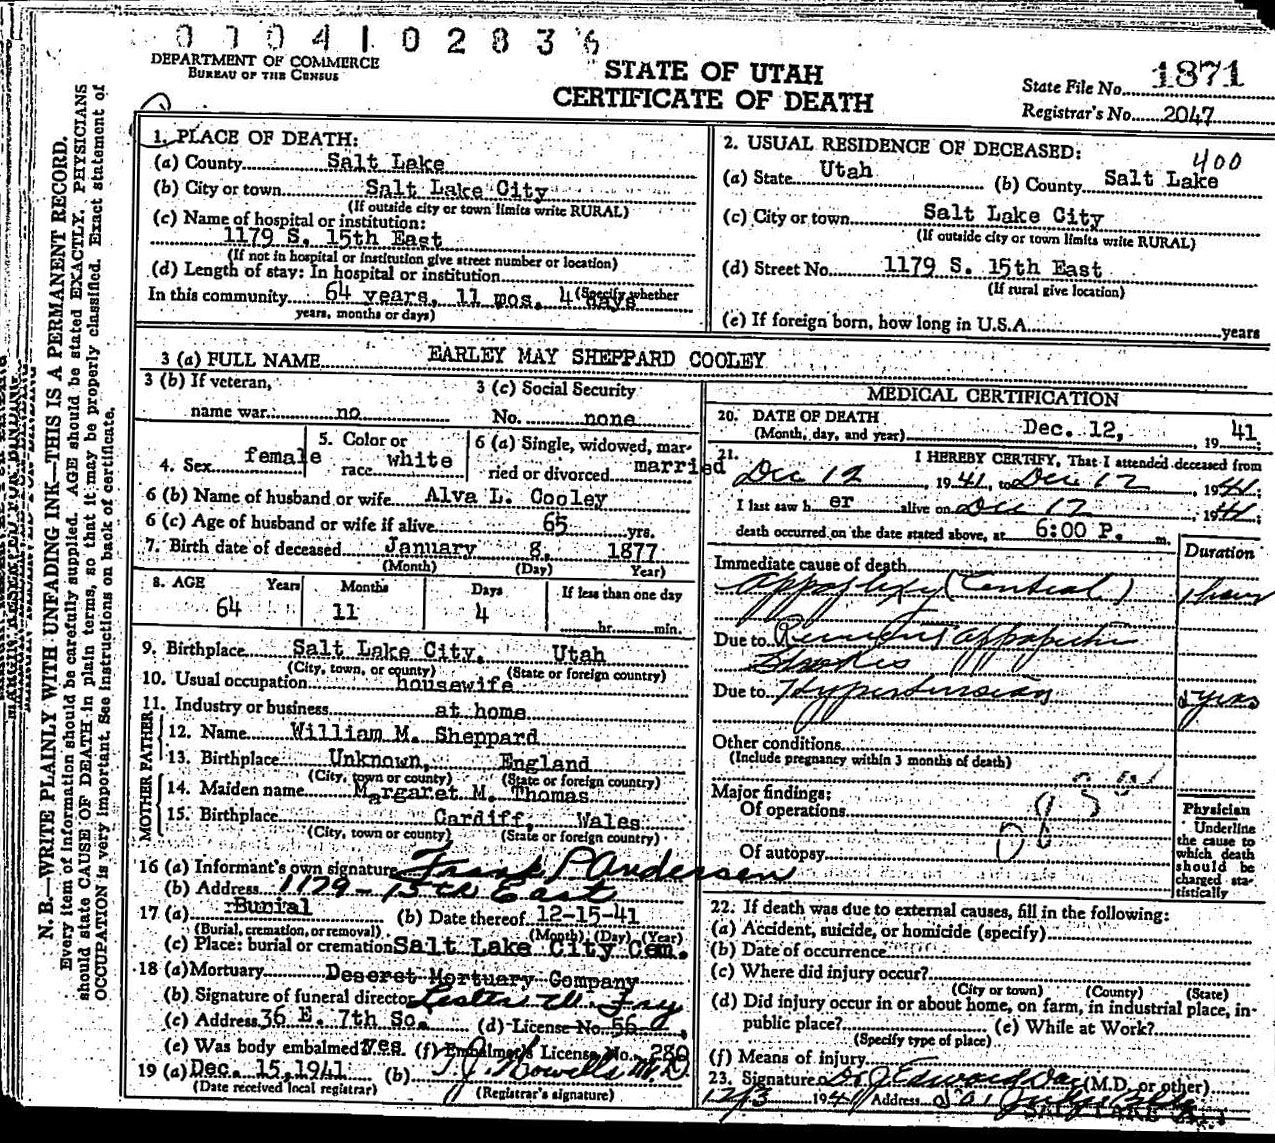 0 7 0 4 1 0 2 8 3 6
DEPARTMENT OF COMMERCE
BUREAU OF THE CENSUS
STATE OF UTAH
CERTIFICATE OF DEATH
State File No. 1871
Registrar's No. 2047
N. B.—WRITE PLAINLY WITH UNFADING INK—THIS IS A PERMANENT RECORD.
Every item of information should be carefully supplied. AGE should be stated EXACTLY. PHYSICIANS
should state CAUSE OF DEATH in plain terms, so that it may be properly classified. Exact statement of
OCCUPATION is very important. See instructions on back of certificate.
1. PLACE OF DEATH:
(a) County Salt Lake
(b) City or town Salt Lake City
(If outside city or town limits write RURAL)
(c) Name of hospital or institution:
1179 S. 15th East
(If not in hospital or institution give street number or location)
(d) Length of stay: In hospital or institution
In this community 64 years, 11 mos. 4 days (Specify whether
years, months or days)
2. USUAL RESIDENCE OF DECEASED: 400
(a) State Utah (b) County Salt Lake
(c) City or town Salt Lake City
(If outside city or town limits write RURAL)
(d) Street No. 1179 S. 15th East
(If rural give location)
(e) If foreign born, how long in U.S.A. years
3 (a) FULL NAME EARLEY MAY SHEPPARD COOLEY
3 (b) If veteran,
name war: no
3 (c) Social Security
No. none
4. Sex female
5. Color or
race white
6 (a) Single, widowed, mar-
ried or divorced married
6 (b) Name of husband or wife Alva L. Cooley
6 (c) Age of husband or wife if alive 65 yrs.
7. Birth date of deceased January 8, 1877
(Month) (Day) Year)
8. AGE Years Months Days If less than one day
64 11 4 hr. min.
9. Birthplace Salt Lake City, Utah
(City, town, or county) (State or foreign country)
10. Usual occupation housewife
11. Industry or business at home
FATHER
12. Name William M. Sheppard
13. Birthplace Unknown, England
(City, town or county) (State or foreign country)
MOTHER
14. Maiden name Margaret M. Thomas
15. Birthplace Cardiff, Wales
(City, town or county) (State or foreign country)
16 (a) Informant's own signature Frank P Andersen
(b) Address 1179 - 15th East
17 (a) Burial (b) Date thereof 12-15-41
(Burial, cremation, or removal) (Month) (Day) (Year)
(c) Place: burial or cremation Salt Lake City Cem.
18 (a) Mortuary Deseret Mortuary Company
(b) Signature of funeral director
(c) Address 36 E. 7th So. (d) License No. 56
(e) Was body embalmed? Yes (f) Embalmer's License No. 280
19 (a) Dec. 15, 1941 (b) T. J. Howells M. D.
(Date received local registrar) (Registrar's signature)
MEDICAL CERTIFICATION
20. DATE OF DEATH
(Month, day, and year) Dec. 12, 19 41
21. I HEREBY CERTIFY, That I attended deceased from
Dec 12, 1941, to Dec 12, 1941;
I last saw h er alive on Dec 12, 1941;
death occurred on the date stated above, at 6:00 P. m.
Duration
Immediate cause of death
1 hour
Due to
Strokes
Due to Hypertension yrs
Other conditions
(Include pregnancy within 3 months of death)
Major findings:
Of operations
Of autopsy
Physician
Underline
the cause to
which death
should be
charged sta-
tistically
22. If death was due to external causes, fill in the following:
(a) Accident, suicide, or homicide (specify)
(b) Date of occurrence
(c) Where did injury occur?
(City or town) (County) (State)
(d) Did injury occur in or about home, on farm, in industrial place, in-
public place? (e) While at Work?
(Specify type of place)
(f) Means of injury
23. Signature Dr J Edward Day (M.D. or other)
12/3 1941 Address
SALT LAKE CITY